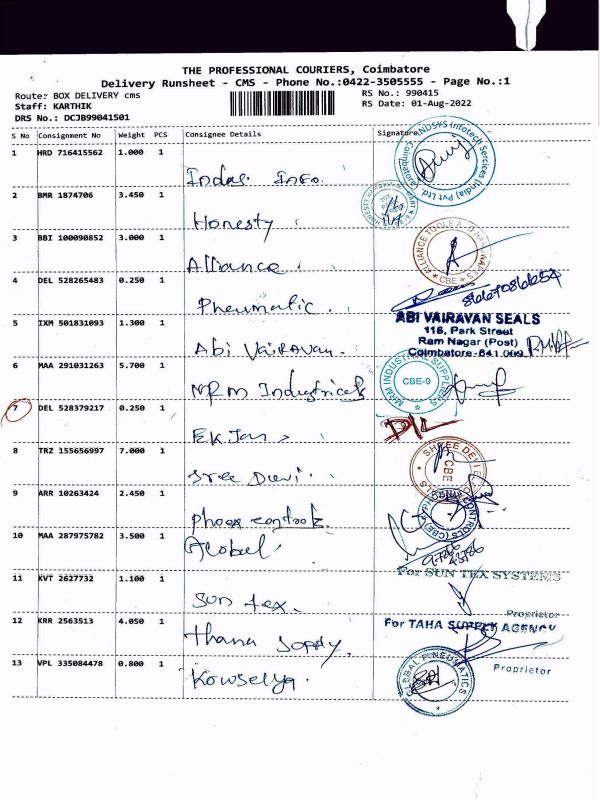 THE PROFESSIONAL COURIERS, Coimbatore
Delivery Runsheet - CMS - Phone No.:0422-3505555 - Page No.:1
Route: BOX DELIVERY cms
RS No.: 990415
Staff: KARTHIK
RS Date: 01-Aug-2022
DRS No.: DCJB99041501
S No Consignment No Weight PCS Consignee Details Signature
1 HRD 716415562 1.000 1
Indas. Info.
INDSYS Infotech Services (India) Pvt Ltd. Coimbatore
2 BMR 1874706 3.450 1
Honesty
3 BBI 100090852 3.000 1
Alliance.
ALLIANCE TOOLS CBE
4 DEL 528265483 0.250 1
Pneumatic.
5 IXM 501831093 1.300 1
Abi Vairavan.
ABI VAIRAVAN SEALS
118, Park Street
Ram Nagar (Post)
Coimbatore-641 009
6 MAA 291031263 5.700 1
MRM Industricals
MRM INDUSTRIAL SUPPLIERS
CBE-9
7 DEL 528379217 0.250 1
8 TRZ 155656997 7.000 1
Sree Devi.
SHREE DEVI
CBE
9 ARR 10263424 2.450 1
CONTROLS (CBE)
10 MAA 287975782 3.500 1
11 KVT 2627732 1.100 1
Sun tex.
For SUN TEX SYSTEMS
Proprietor
12 KRR 2563513 4.050 1
For TAHA SUPPLY AGENCY
Proprietor
13 VPL 335084478 0.800 1
Kowselya.
GLOBAL PNEUMATICS